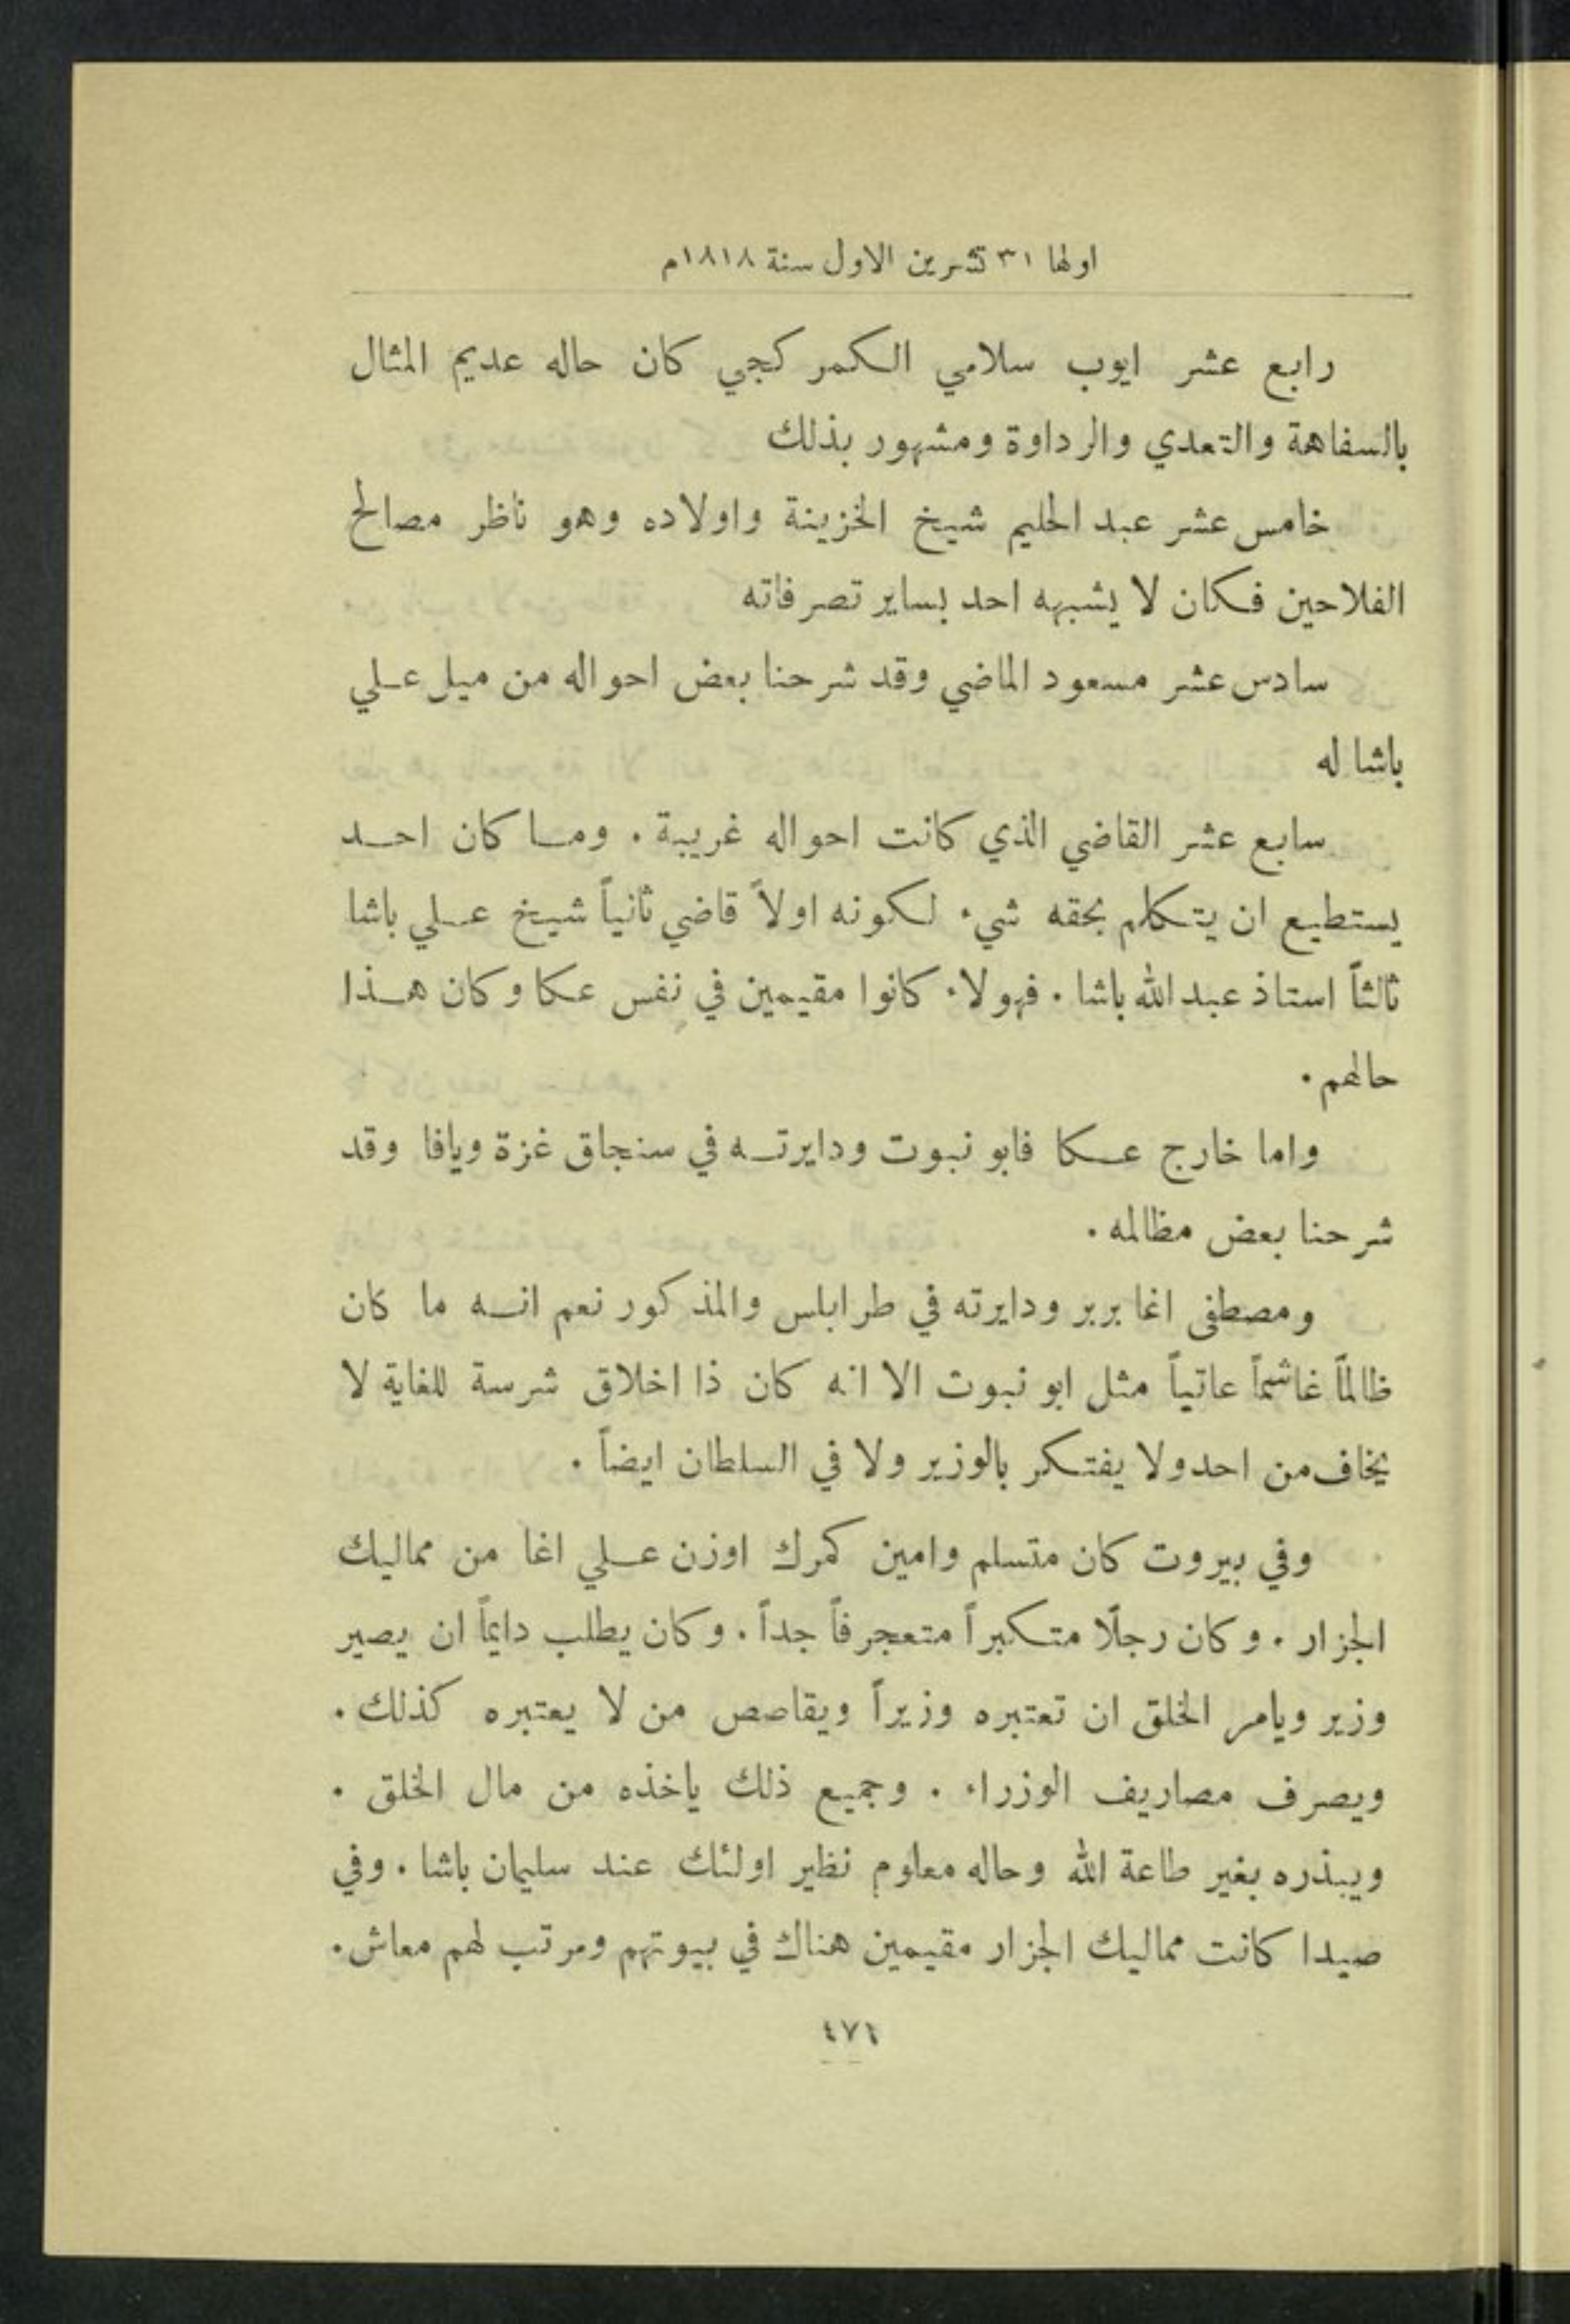 اولها ٣١ تشرين الاول سنة ١٨١٨م
رابع عشر ايوب سلامي الكمركجي كان حاله عديم المثال
بالسفاهة والتعدي والرداوة ومشهور بذلك
خامس عشر عبد الحليم شيخ الخزينة واولاده وهو ناظر مصالح
الفلاحين فكان لا يشبهه احد بساير تصرفاته
سادس عشر مسعود الماضي وقد شرحنا بعض احواله من ميل علي
باشا له
سابع عشر القاضي الذي كانت احواله غريبة . وما كان احد
يستطيع ان يتكلم بحقه شيء لكونه اولاً قاضي ثانياً شيخ علي باشا
ثالثاً استاذ عبد الله باشا . فهولاء كانوا مقيمين في نفس عكا وكان هذا
حالهم .
واما خارج عكا فابو نبوت ودايرته في سنجاق غزة ويافا وقد
شرحنا بعض مظالمه .
ومصطفى اغا بربر ودايرته في طرابلس والمذكور نعم انه ما كان
ظالماً غاشماً عاتياً مثل ابو نبوت الا انه كان ذا اخلاق شرسة للغاية لا
يخاف من احد ولا يفتكر بالوزير ولا في السلطان ايضاً .
وفي بيروت كان متسلم وامين كمرك اوزن علي اغا من مماليك
الجزار . وكان رجلًا متكبراً متعجرفاً جداً . وكان يطلب دايماً ان يصير
وزير ويامر الخلق ان تعتبره وزيراً ويقاصص من لا يعتبره كذلك .
ويصرف مصاريف الوزراء . وجميع ذلك ياخذه من مال الخلق .
ويبذره بغير طاعة الله وحاله معلوم نظير اولئك عند سليمان باشا . وفي
صيدا كانت مماليك الجزار مقيمين هناك في بيوتهم ومرتب لهم معاش .
٤٧١